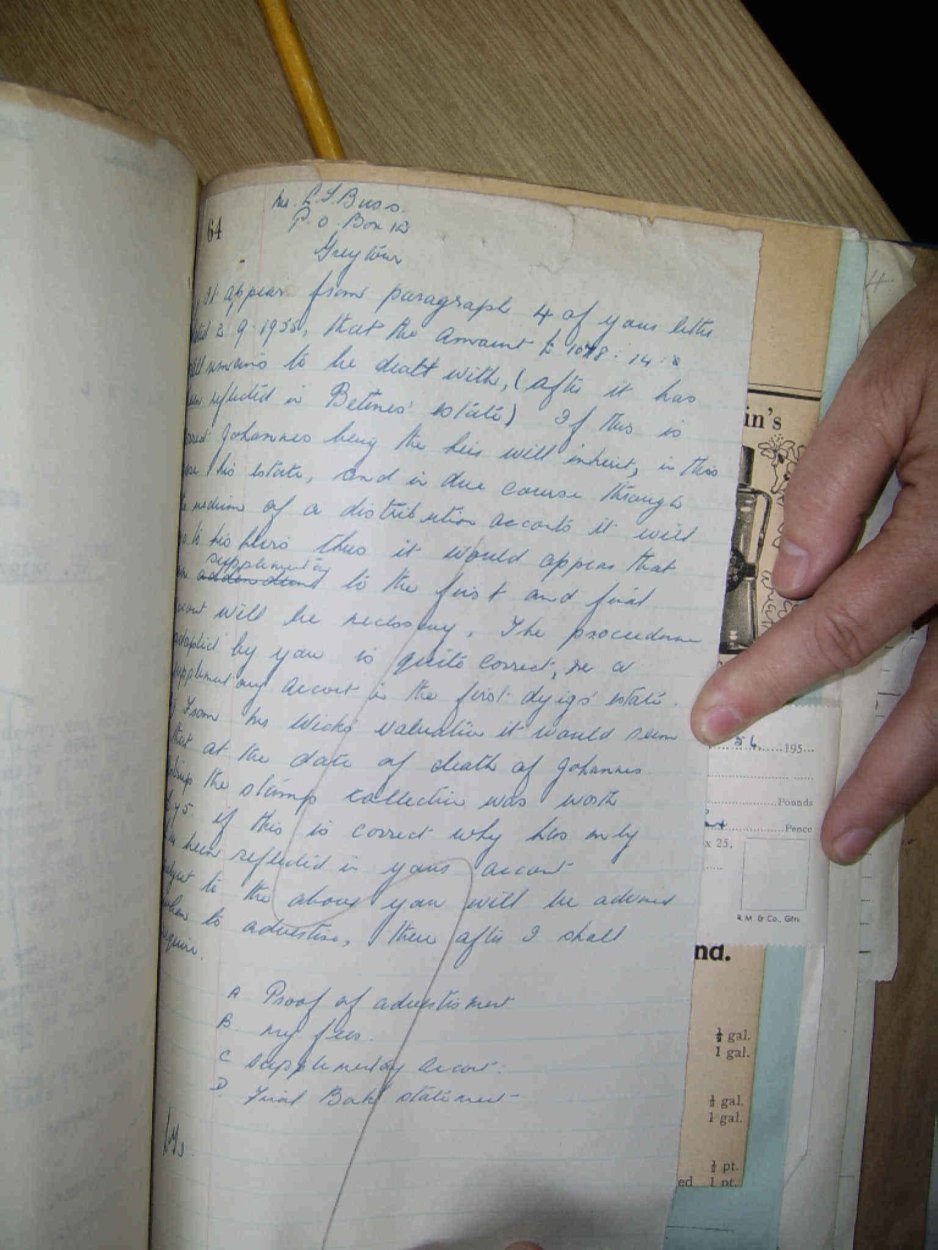 64
Mr. C F Buss.
P. O. Box 12
Greytown
It appears from paragraph 4 of your letter
2.9.1955, that the amount £ 1078 : 14 : 8
remains to be dealt with, (after it has
reflected in Betinos' estate) If this is
Johannes being the heir will inherit, in this
his estate, and in due course through
medium of a distribution accounts it will
his heirs thus it would appear that
supplementary
addendum to the first and final
will be necessary. The proceedure
adopted by you is quite correct, ie a
supplementary account in the first dying's estate.
From his Wicks valuation it would seem
that at the date of death of Johannes
the stamp collection was worth
if this is correct why has only
been reflected in your account
to the above you will be advised
when to advertise, there after I shall
require.
A Proof of advertisment
B. my fees.
C supplementary account.
D. Final Bank statement
in's
54 195
Pounds
Pence
x 25,
R.M & Co., Gtn.
nd.
½ gal.
1 gal.
½ gal.
1 gal.
½ pt.
ed 1 pt.